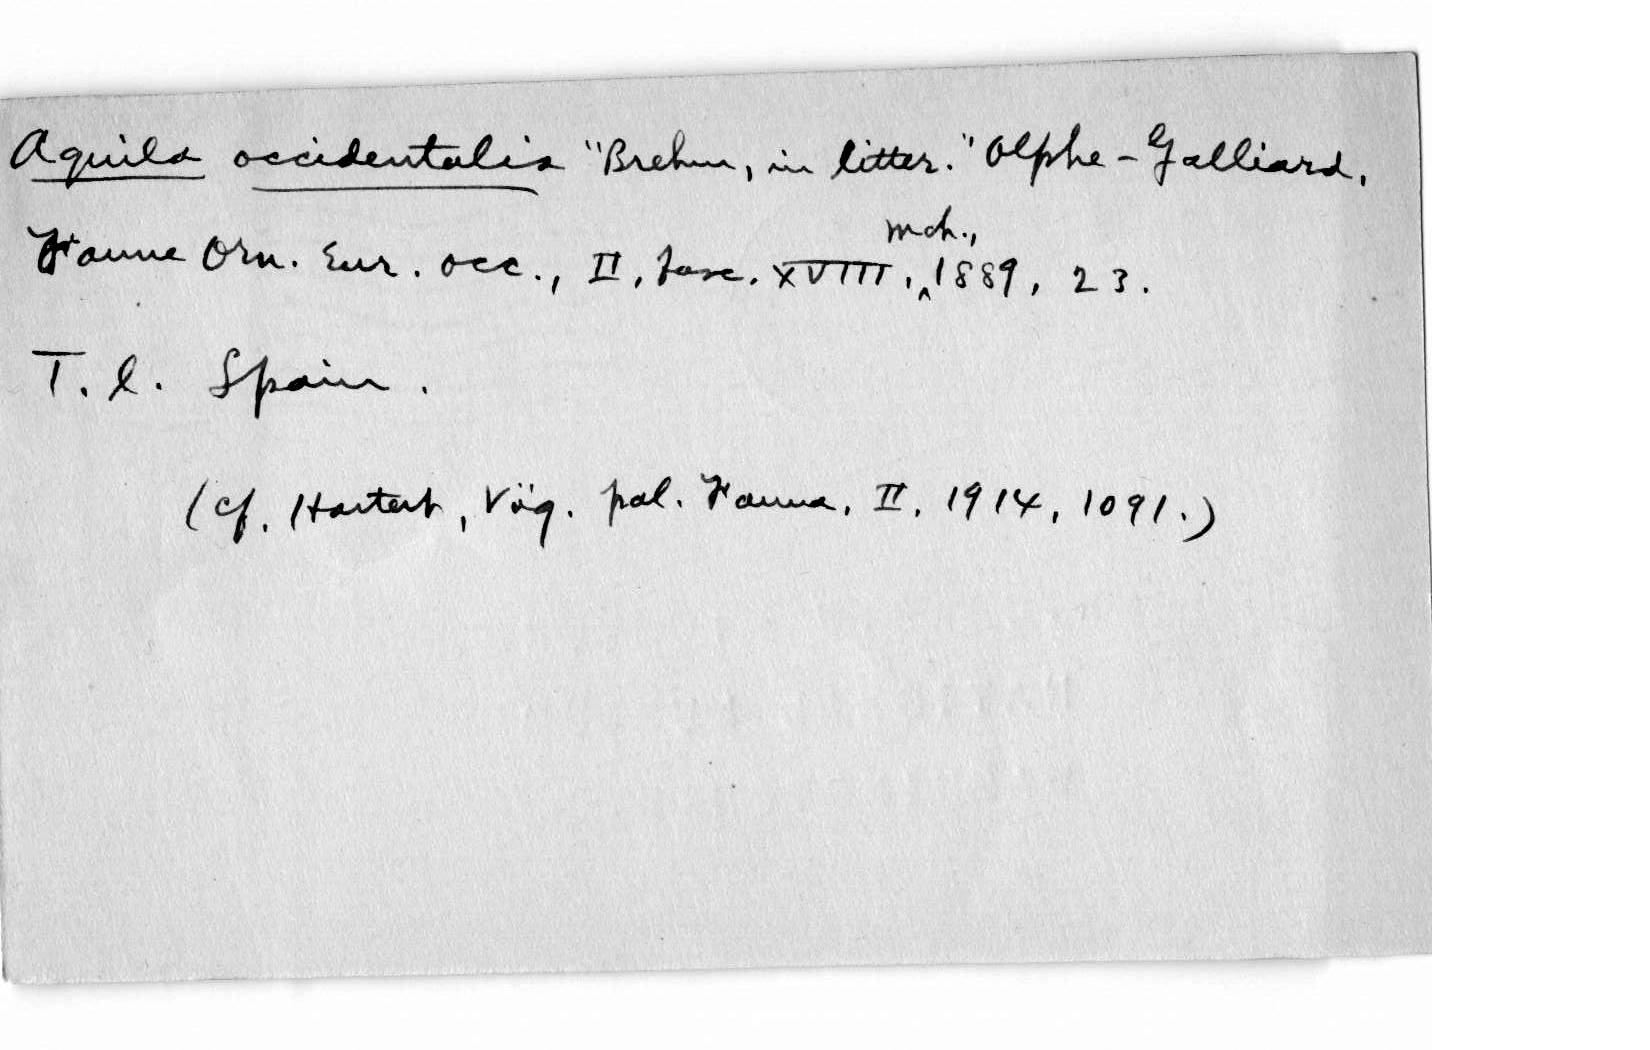 Aquila occidentalis "Brehm, in litter." Olphe-Galliard,
Faune Orn. Eur. occ., II, fasc. XVIII, Mch., 1889, 23.
T. l. Spain.
(cf. Hartert, Vög. pal. Fauna, II, 1914, 1091.)